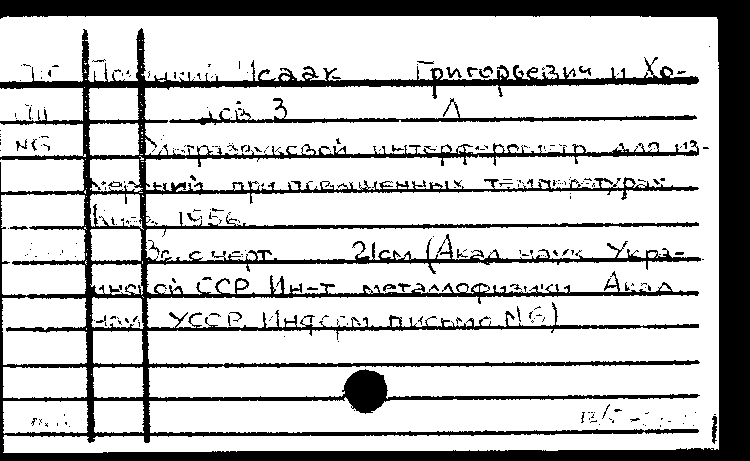 Исаак Григорьевич и Хо-
З Л
№6 Ультразвуковой интерферометр для из-
мерений при повышенных температурах.
Киев, 1956.
3с. с черт. 21см (Акад. наук Укра-
инской ССР. Ин-т металлофизики Акад.
наук УССР. Информ. письмо №6)